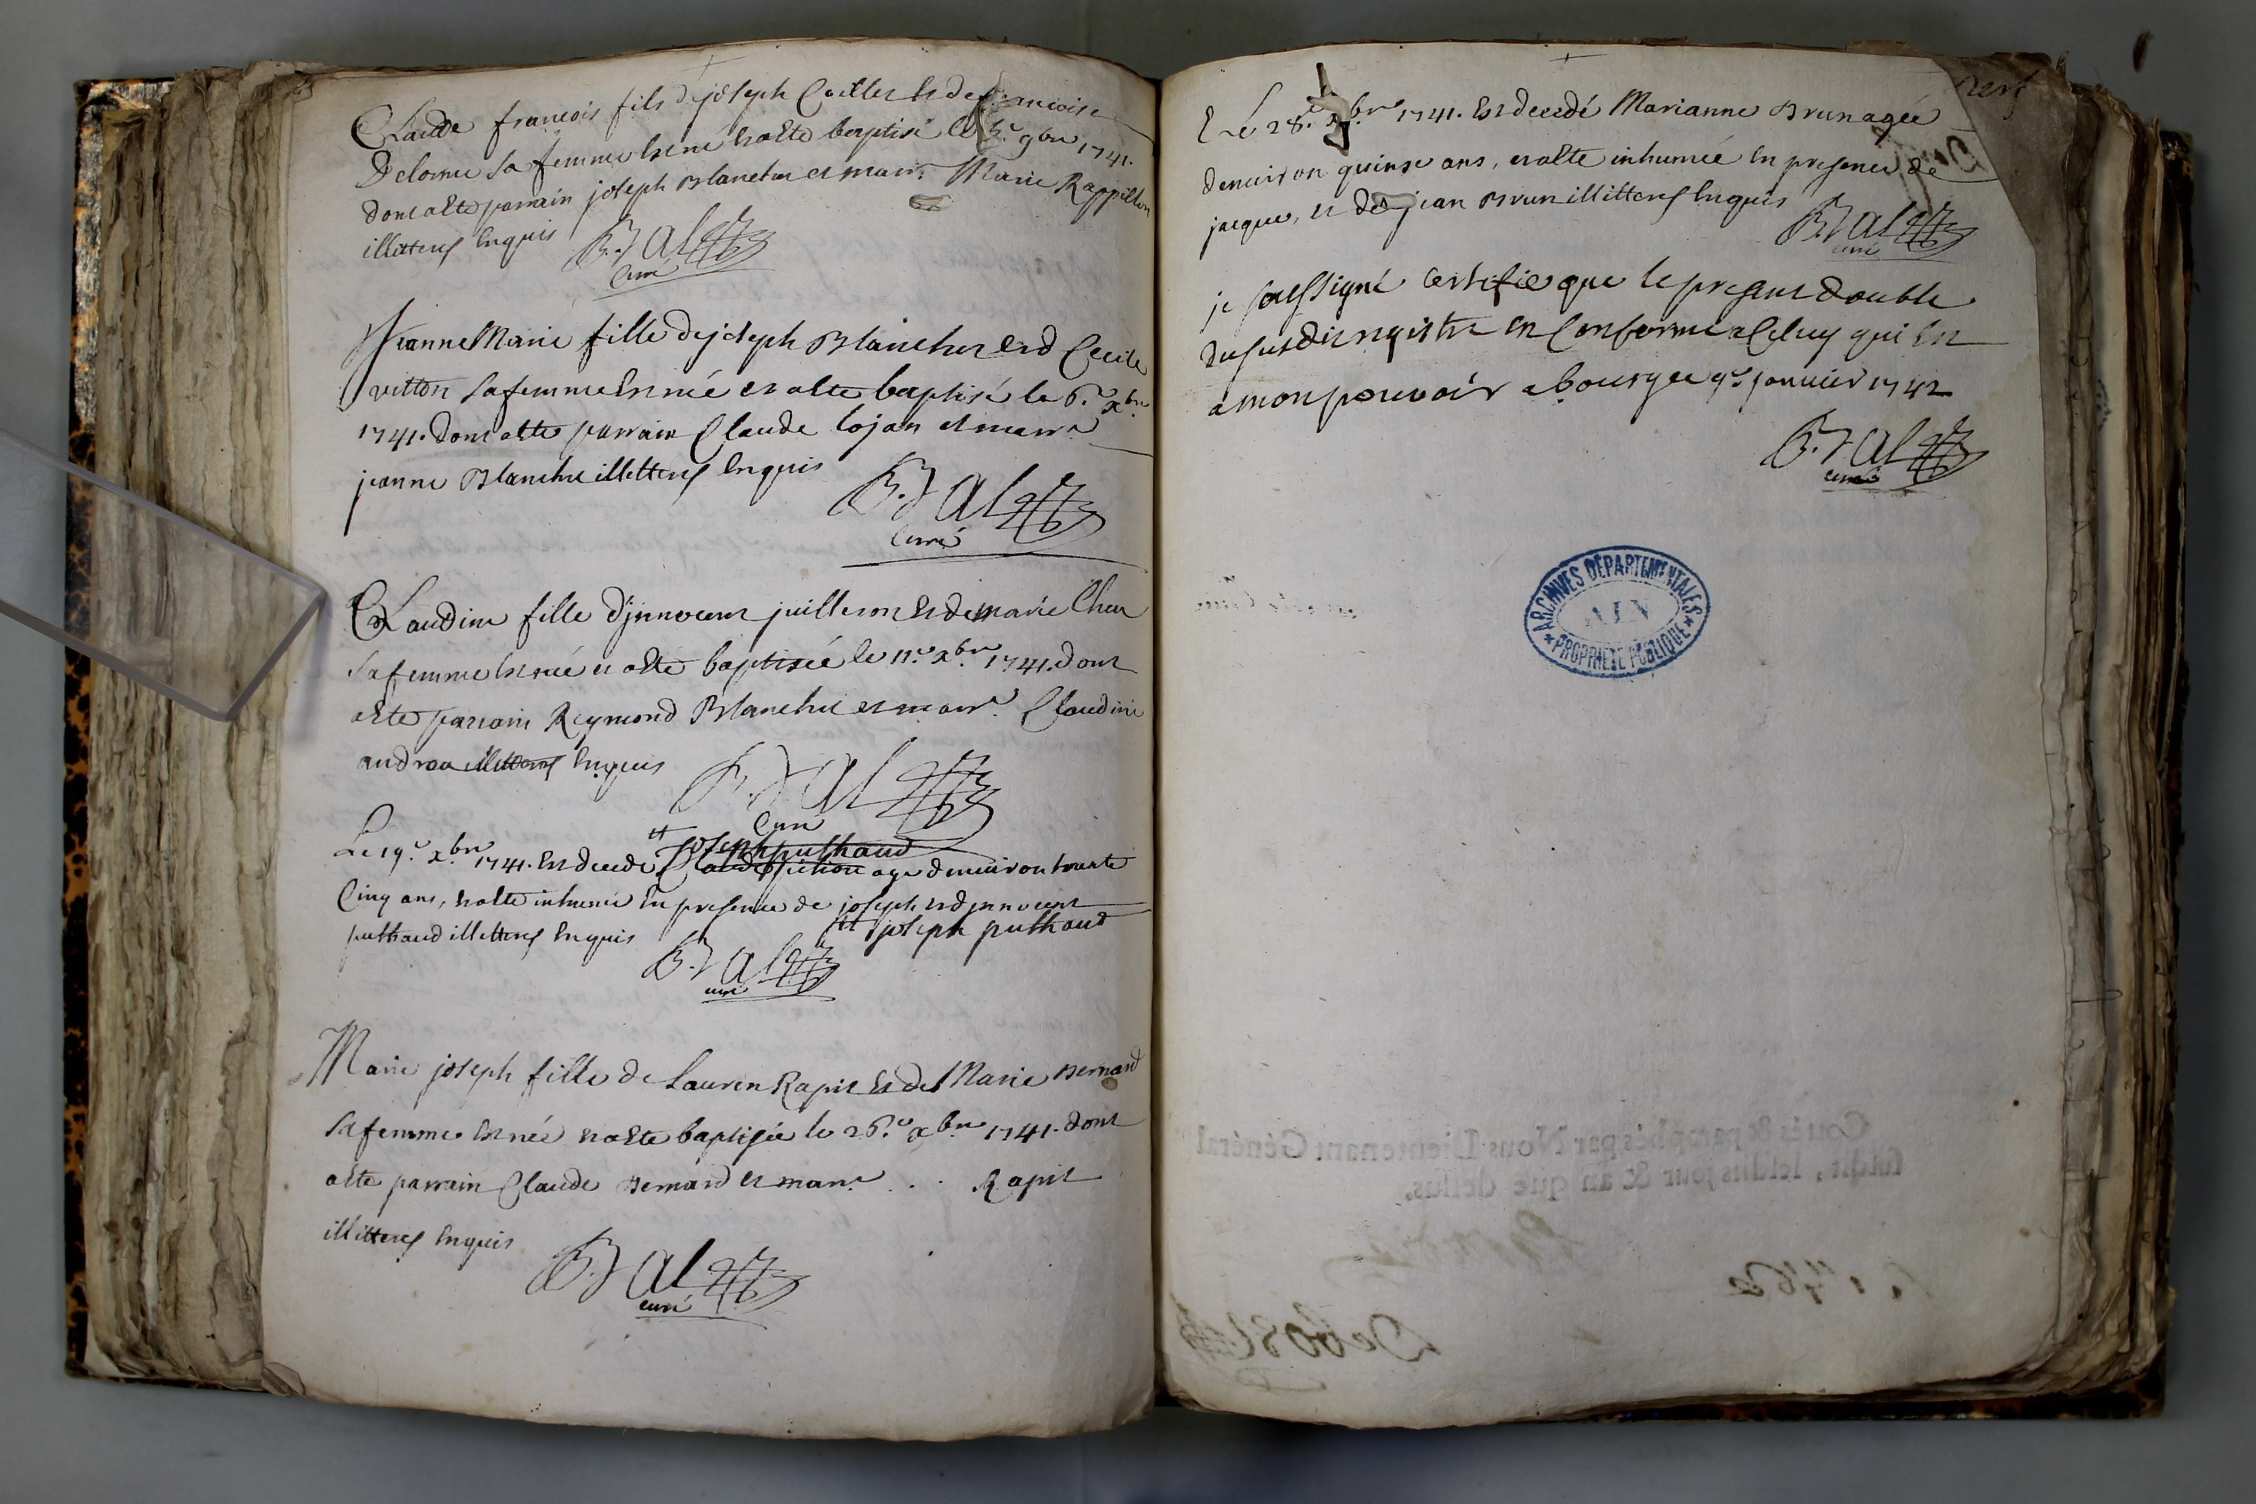 Claude francois fils de joseph Caillet et de francoise
Delorme sa femme est né et a été baptisé le 9bre 1741.
dont a été parrain joseph Blanchet et marr.e Marie Rappillon
illitterés enquis
curé
Jeanne Marie fille de joseph Blanchet et de Cecile
vitton sa femme est née et a été baptisé le 6.e xbre
1741. dont a été parrain Claude lojan et marr.e
jeanne Blanchet illitterés enquis
Curé
Claudine fille d'jnnocent juilleron et de marie Chen
sa femme est née et a été baptisée le 11.e xbre 1741. dont
a été parrain Reymond Blanchet et marr.e Claudine
illitterés enquis
Curé
joseph puthaud
Le 19.e xbre 1741. est decedé agé d'environ trente
Cinq ans, et a été inhumé en presence de joseph et d'jnnocent
puthaud illitterés enquis
joseph puthaud
curé
Marie joseph fille de Lauren Rapit et de Marie Bernard
sa femme est née et a été baptisée le 26.e xbre 1741. dont
a été parrain Claude Bernard et marr.e . . Rapit
illitterés enquis
curé
Le 28.e xbre 1741. est decedé Marianne Brun agée
d'environ quinse ans, et a été inhumée en presence de
jacque, et de jean Brun illitterés enquis
curé
je soussigné certifie que le present double
du susdit registre est conforme a Celuy qui est
a mon pouvoir a bourg ce 9e janvier 1742
curé
ARCHIVES DÉPARTEMENTALES
AIN
PROPRIÉTÉ PUBLIQUE
Cotté & paraphés par Nous Lieutenant Général
susdit, lesdits jour & an que dessus.